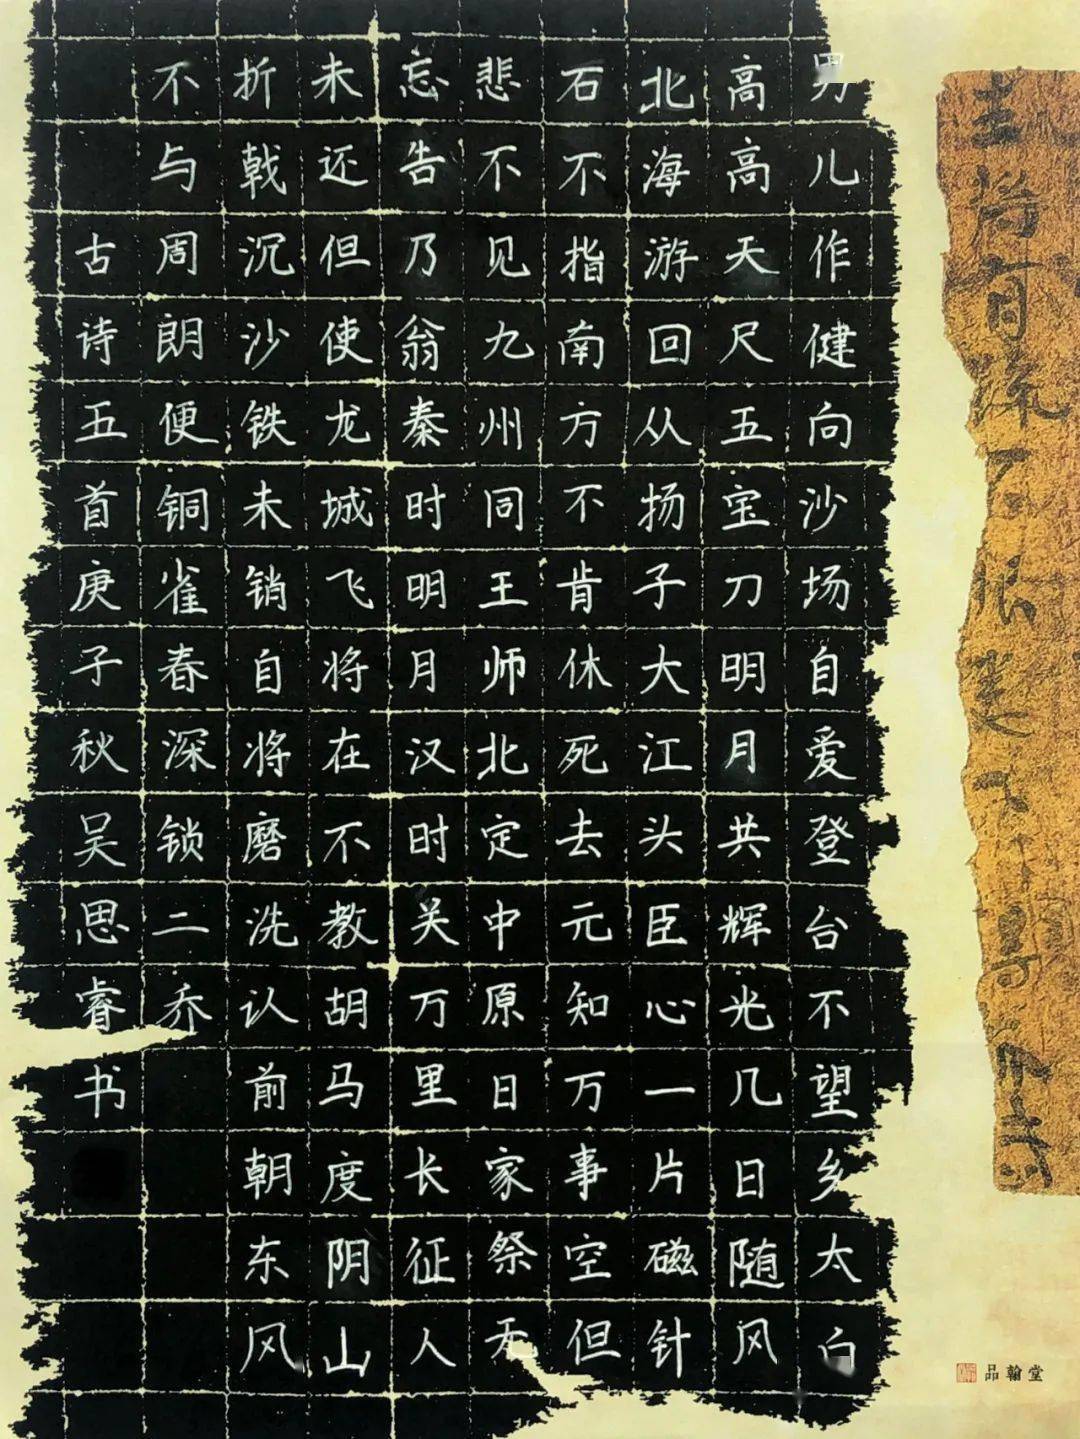 男儿作健向沙场自爱登台不望乡太白
高高天尺五宝刀明月共辉光几日随风
北海游回从扬子大江头臣心一片磁针
石不指南方不肯休死去元知万事空但
悲不见九州同王师北定中原日家祭无
忘告乃翁秦时明月汉时关万里长征人
未还但使龙城飞将在不教胡马度阴山
折戟沉沙铁未销自将磨洗认前朝东风
不与周朗便铜雀春深锁二乔
古诗五首庚子秋吴思睿书
品翰堂